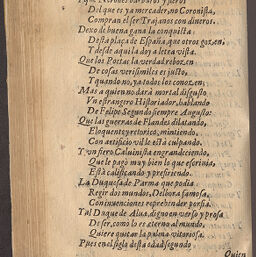 Del que es ya mercader, no Coronista,
Compran el ser Trajanos con dineros.
Dexo de buena gana la conquista
Desta plaça de España, que otros gozen,
Y desde aqui la doy a letra vista.
Que los Poetas la verdad rebozen
De cosas verisimiles es justo,
Y quando no, ya todos los conozen;
Mas a quien no dará mortal disgusto
Vn estrangero Historiador, hablando
De Felipe Segundo siempre Augusto:
Que las guerras de Flandes dilatando,
Eloquente y retorico, mintiendo,
Con artificio vil le está culpando.
Y vn fiero Caluinista engrandeciendo,
Que le pagó muy bien lo que escriuia,
Està calificando y prefiriendo.
La Duquesa de Parma que podia
Regir dos mundos, Delbora famosa,
Con inuenciones reprehender porfia.
Tal Duque de Alua, digno en verso y prosa
De ser, como lo es, eterno al mundo,
Quiere quitar la palma vitoriosa.
Pues en el siglo desta edad segundo
Quien